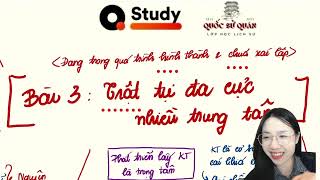 Study
QUỐC SỬ QUÁN
LỚP HỌC LỊCH SỬ
<Đang trong quá trình hình thành & chưa xác lập>
[Bài 3: Trật tự đa cực
nhiều trung tâm
Phát triển lấy KT
là trọng tâm
KT là cơ
Nguyên